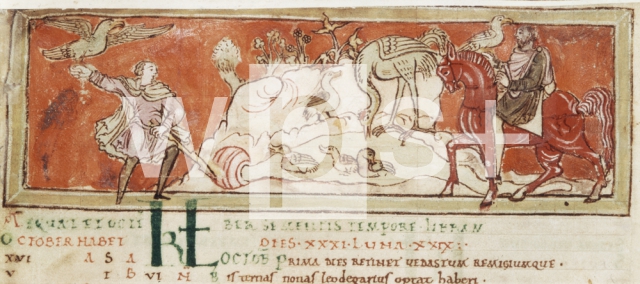 ÆQUAT ET OCTIMBER SEMENTIS TEMPORE LIBRAN
OCTOBER HABET DIES XXXI LUNA XXIX
XVI A S A KL OCTOB PRIMA DIES RETINET UEDASTUM REMIGIUMQUE.
V B VI N B leodegarius optat haberi